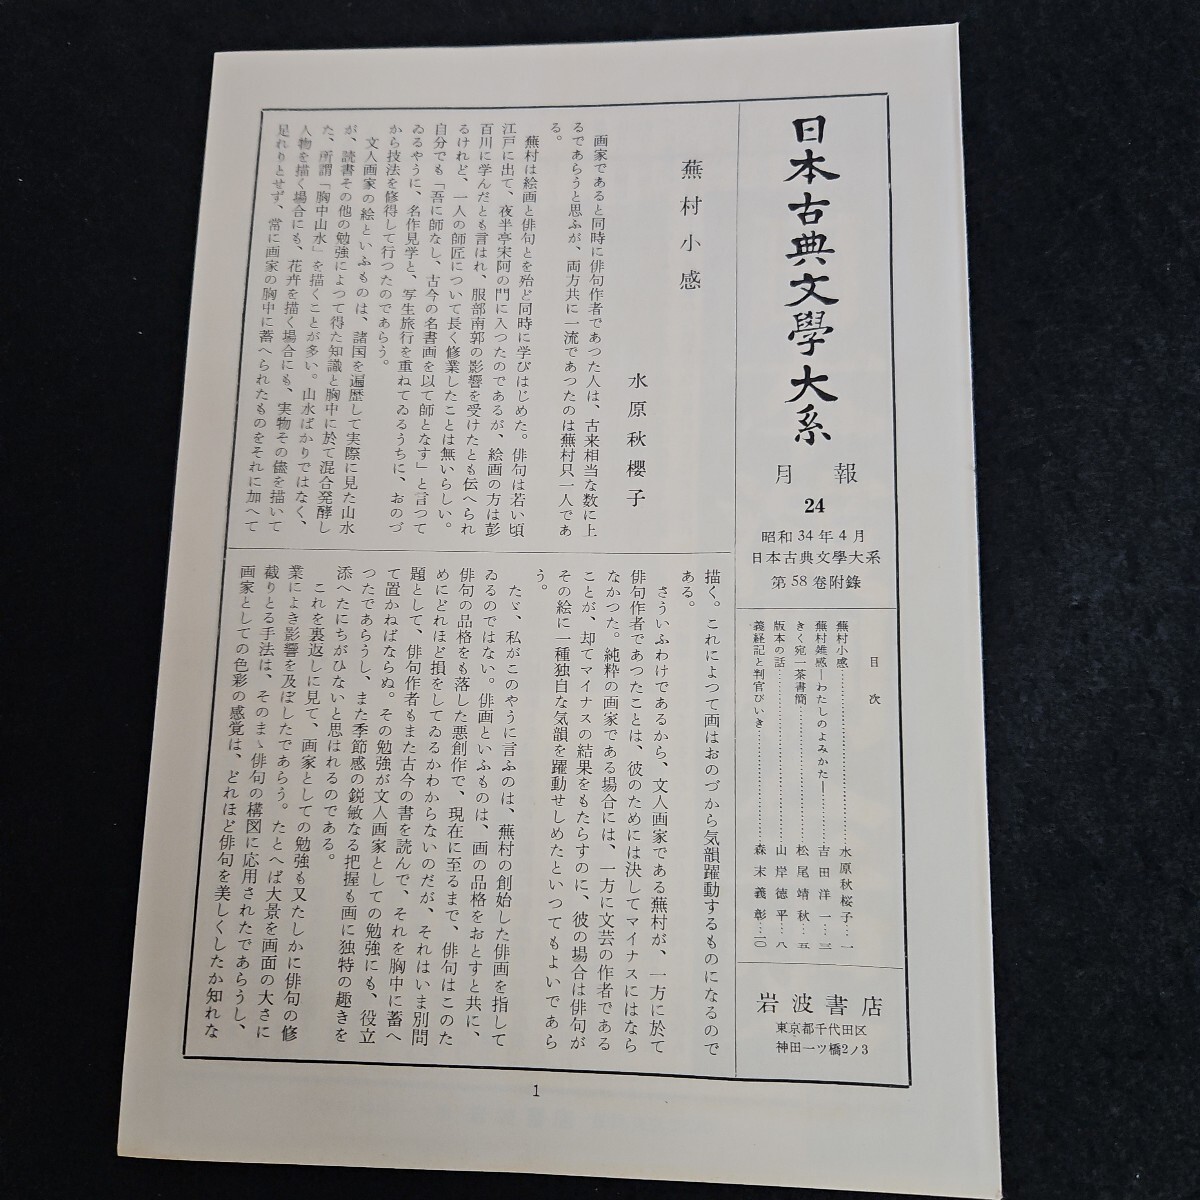 日本古典文學大系
月報
24
昭和34年4月
日本古典文學大系
第58巻附錄
目次
蕪村小感……水原秋桜子…一
蕪村雑感―わたしのよみかた―……吉田洋一…三
きく宛一茶書簡……松尾靖秋…五
版本の話……山岸徳平…八
義経記と判官びいき……森末義彰…一〇
岩波書店
東京都千代田区
神田一ツ橋2ノ3
蕪村小感
水原秋櫻子
画家であると同時に俳句作者であつた人は、古来相当な数に上
るであらうと思ふが、両方共に一流であつたのは蕪村只一人であ
る。
蕪村は絵画と俳句とを殆ど同時に学びはじめた。俳句は若い頃
江戸に出て、夜半亭宋阿の門に入つたのであるが、絵画の方は彭
百川に学んだとも言はれ、服部南郭の影響を受けたとも伝へられ
るけれど、一人の師匠について長く修業したことは無いらしい。
自分でも「吾に師なし、古今の名書画を以て師となす」と言つて
ゐるやうに、名作見学と、写生旅行を重ねてゐるうちに、おのづ
から技法を修得して行つたのであらう。
文人画家の絵といふものは、諸国を遍歴して実際に見た山水
が、読書その他の勉強によつて得た知識と胸中に於て混合発酵し
た、所謂「胸中山水」を描くことが多い。山水ばかりではなく、
人物を描く場合にも、花卉を描く場合にも、実物その儘を描いて
足れりとせず、常に画家の胸中に蓄へられたものをそれに加へて
描く。これによつて画はおのづから気韻躍動するものになるので
ある。
さういふわけであるから、文人画家である蕪村が、一方に於て
俳句作者であつたことは、彼のためには決してマイナスにはなら
なかつた。純粋の画家である場合には、一方に文芸の作者である
ことが、却てマイナスの結果をもたらすのに、彼の場合は俳句が
その絵に一種独自な気韻を躍動せしめたといつてもよいであら
う。
たゞ、私がこのやうに言ふのは、蕪村の創始した俳画を指して
ゐるのではない。俳画といふものは、画の品格をおとすと共に、
俳句の品格をも落した悪創作で、現在に至るまで、俳句はこのた
めにどれほど損をしてゐるかわからないのだが、それはいま別問
題として、俳句作者もまた古今の書を読んで、それを胸中に蓄へ
て置かねばならぬ。その勉強が文人画家としての勉強にも、役立
つたであらうし、また季節感の鋭敏なる把握も画に独特の趣きを
添へたにちがひないと思はれるのである。
これを裏返しに見て、画家としての勉強も又たしかに俳句の修
業によき影響を及ぼしたであらう。たとへば大景を画面の大さに
截りとる手法は、そのまゝ俳句の構図に応用されたであらうし、
画家としての色彩の感覚は、どれほど俳句を美しくしたか知れな
1